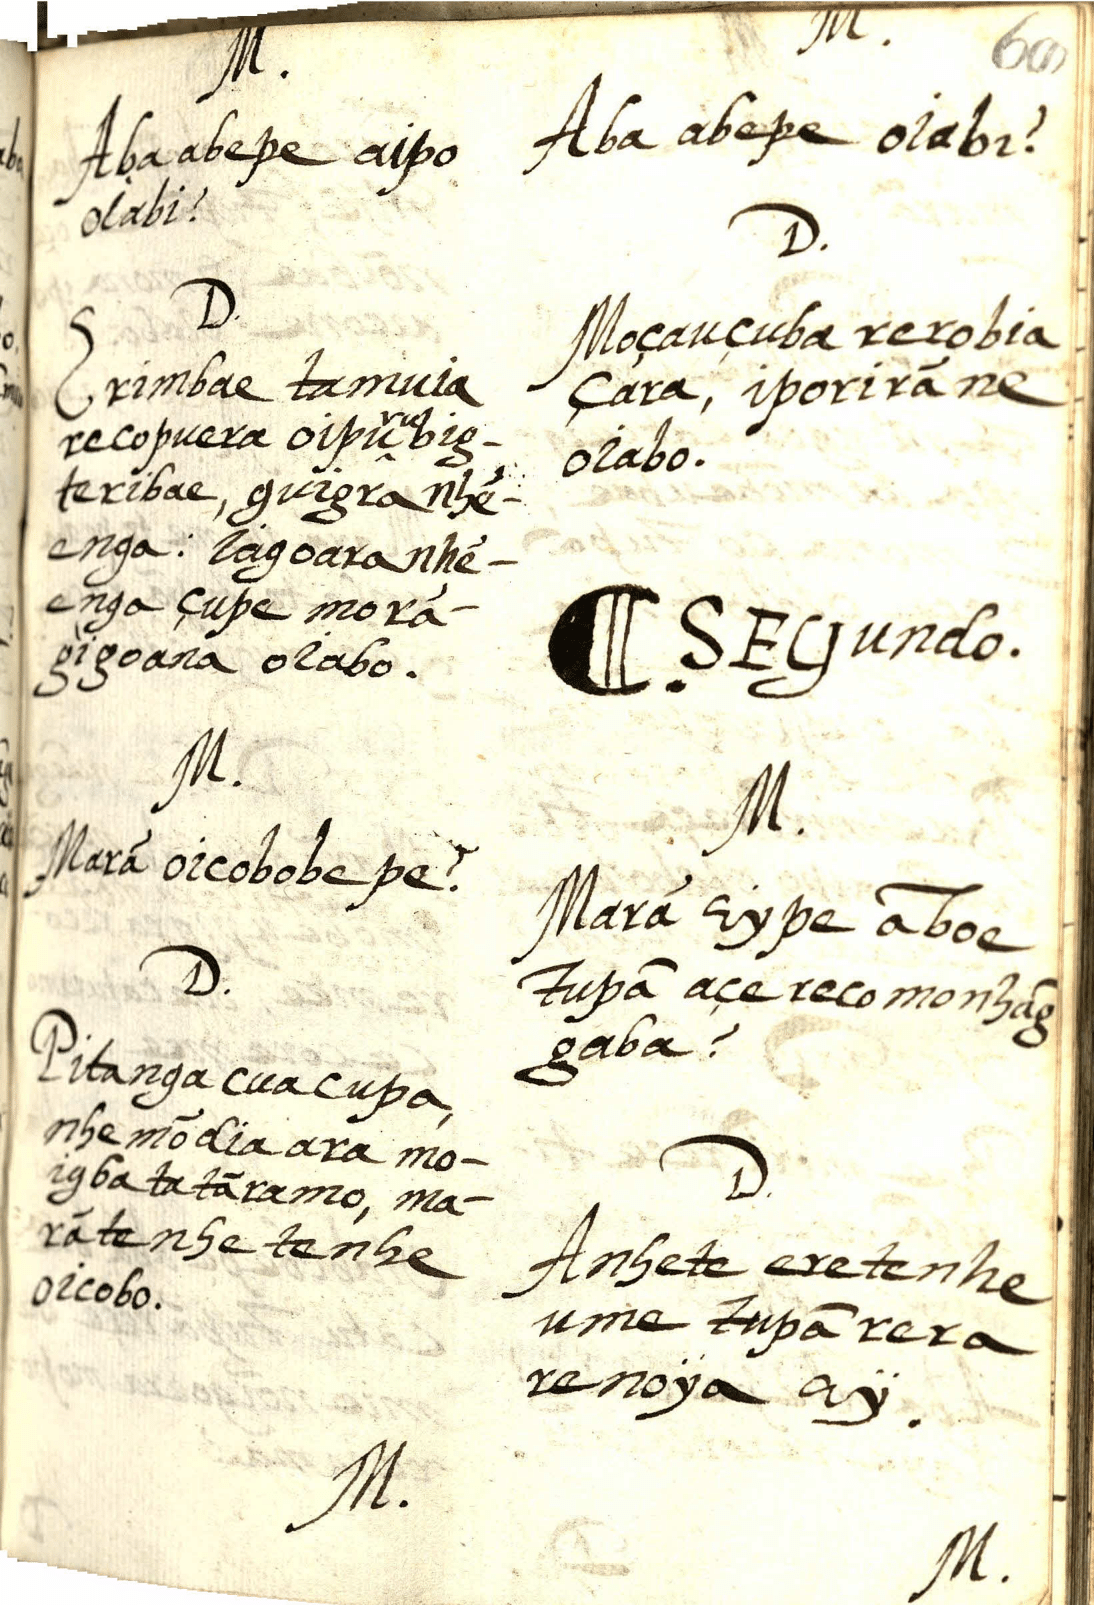 M.
Aba abepe aipo
oiabi?
D.
Erimbae tamuia
recopuera oipurũbig-
teribae, guigra nhé-
enga: iagoara nhé-
enga çupe morá-
gigoana oiabo.
M.
Mará oicobobe pe?
D.
Pitanga cuacupa,
nhemõdia ara mo-
igbatatãramo, ma-
rátenhe tenhe
oicobo.
M.
M.
Aba abepe oiabi?
D.
Moçauçuba rerobia
çara, iporirãne
oiabo.
¶. SEGundo.
M.
Mará aýpe āboe
tupã açe recomonhãg
gaba?
D.
Anhete eretenhe
ume tupã rera
renoÿa aÿ.
M.